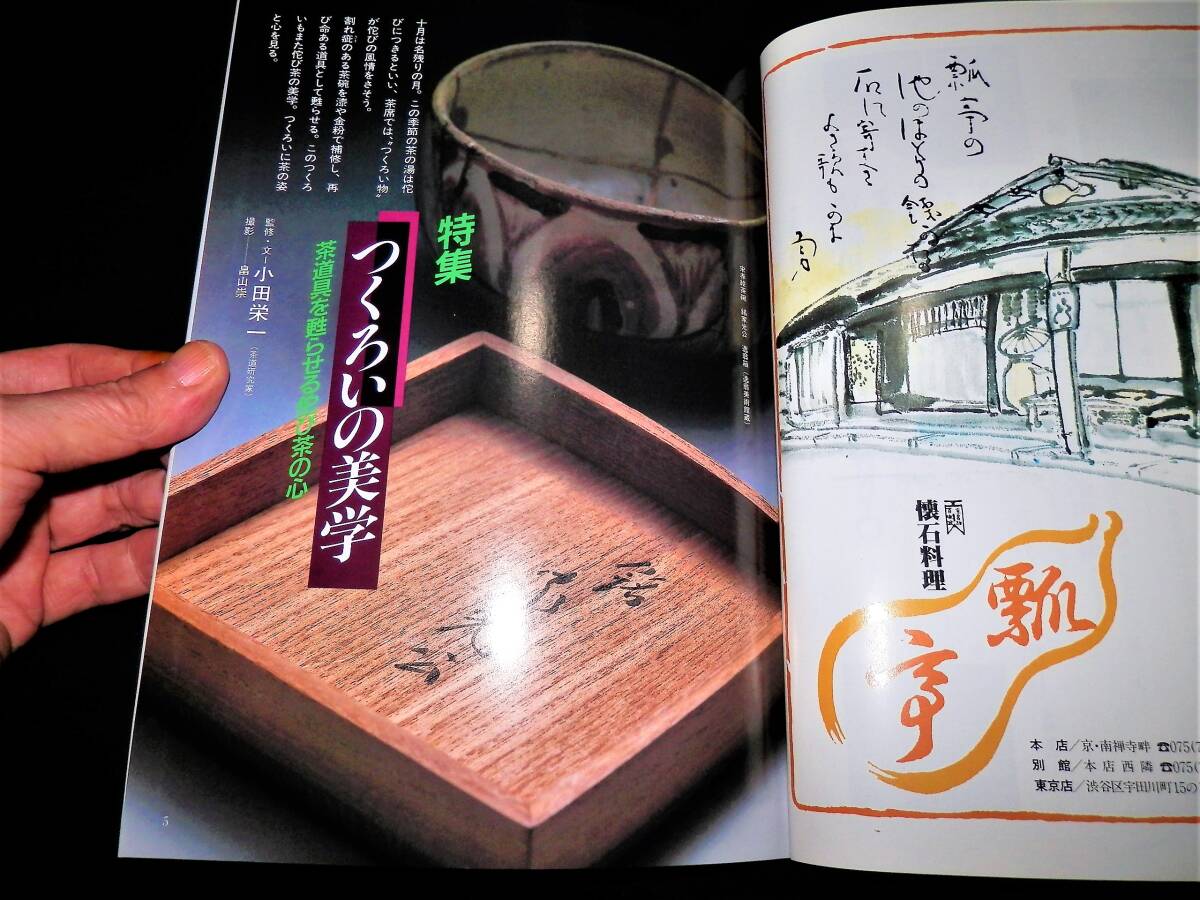 十月は名残りの月。この季節の茶の湯は侘
びにつきるといい、茶席では、“つくろい物”
が侘びの風情をさそう。
割れ疵のある茶碗を漆や金粉で補修し、再
び命ある道具として甦らせる。このつくろ
いもまた侘び茶の美学。つくろいに茶の姿
と心を見る。
特集
つくろいの美学
茶道具を甦らせる侘び茶の心
監修・文―小田栄一（茶道研究家）
撮影―畠山崇
5
瓢亭の
池のほとりの
懐石料理
瓢亭
本店／京・南禅寺畔 ☎075(7
別館／本店西隣 ☎075(
東京店／渋谷区宇田川町15の